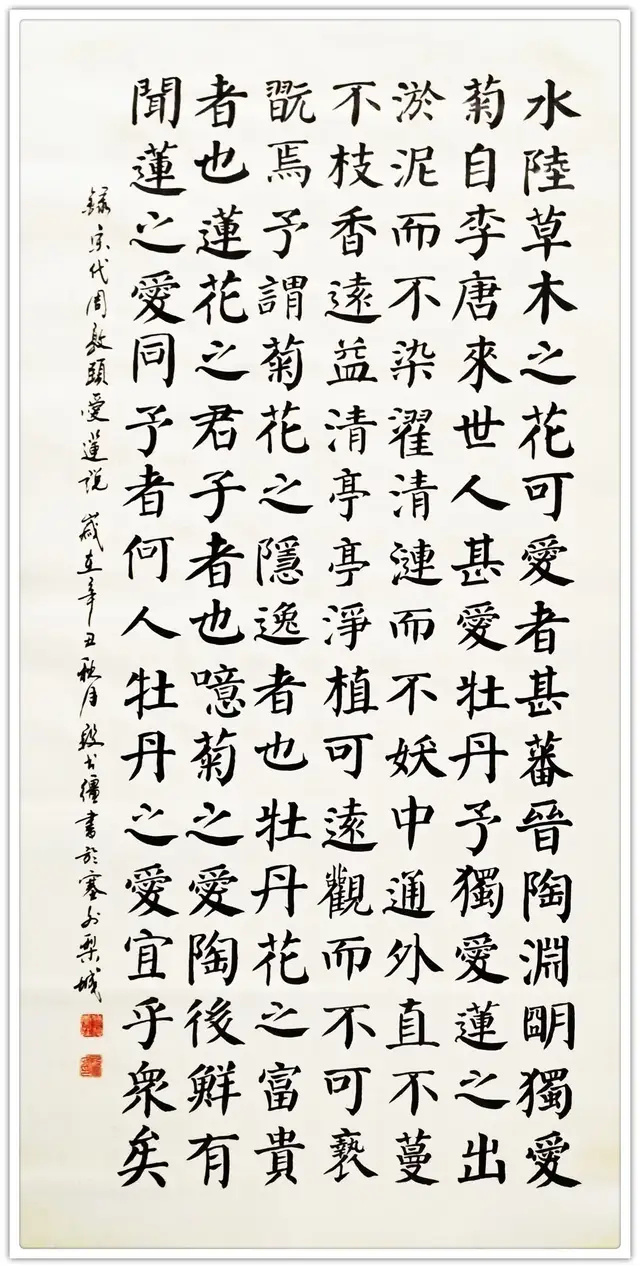 水陸草木之花可愛者甚蕃晉陶淵朙獨愛
菊自李唐來世人甚愛牡丹予獨愛蓮之出
淤泥而不染濯清漣而不妖中通外直不蔓
不枝香遠益清亭亭淨植可遠觀而不可褻
翫焉予謂菊花之隱逸者也牡丹花之富貴
者也蓮花之君子者也噫菊之愛陶後鮮有
聞蓮之愛同予者何人牡丹之愛宜乎衆矣
錄宋代周敦頤愛蓮說 歲在辛丑秋月 疆書於塞外梨城